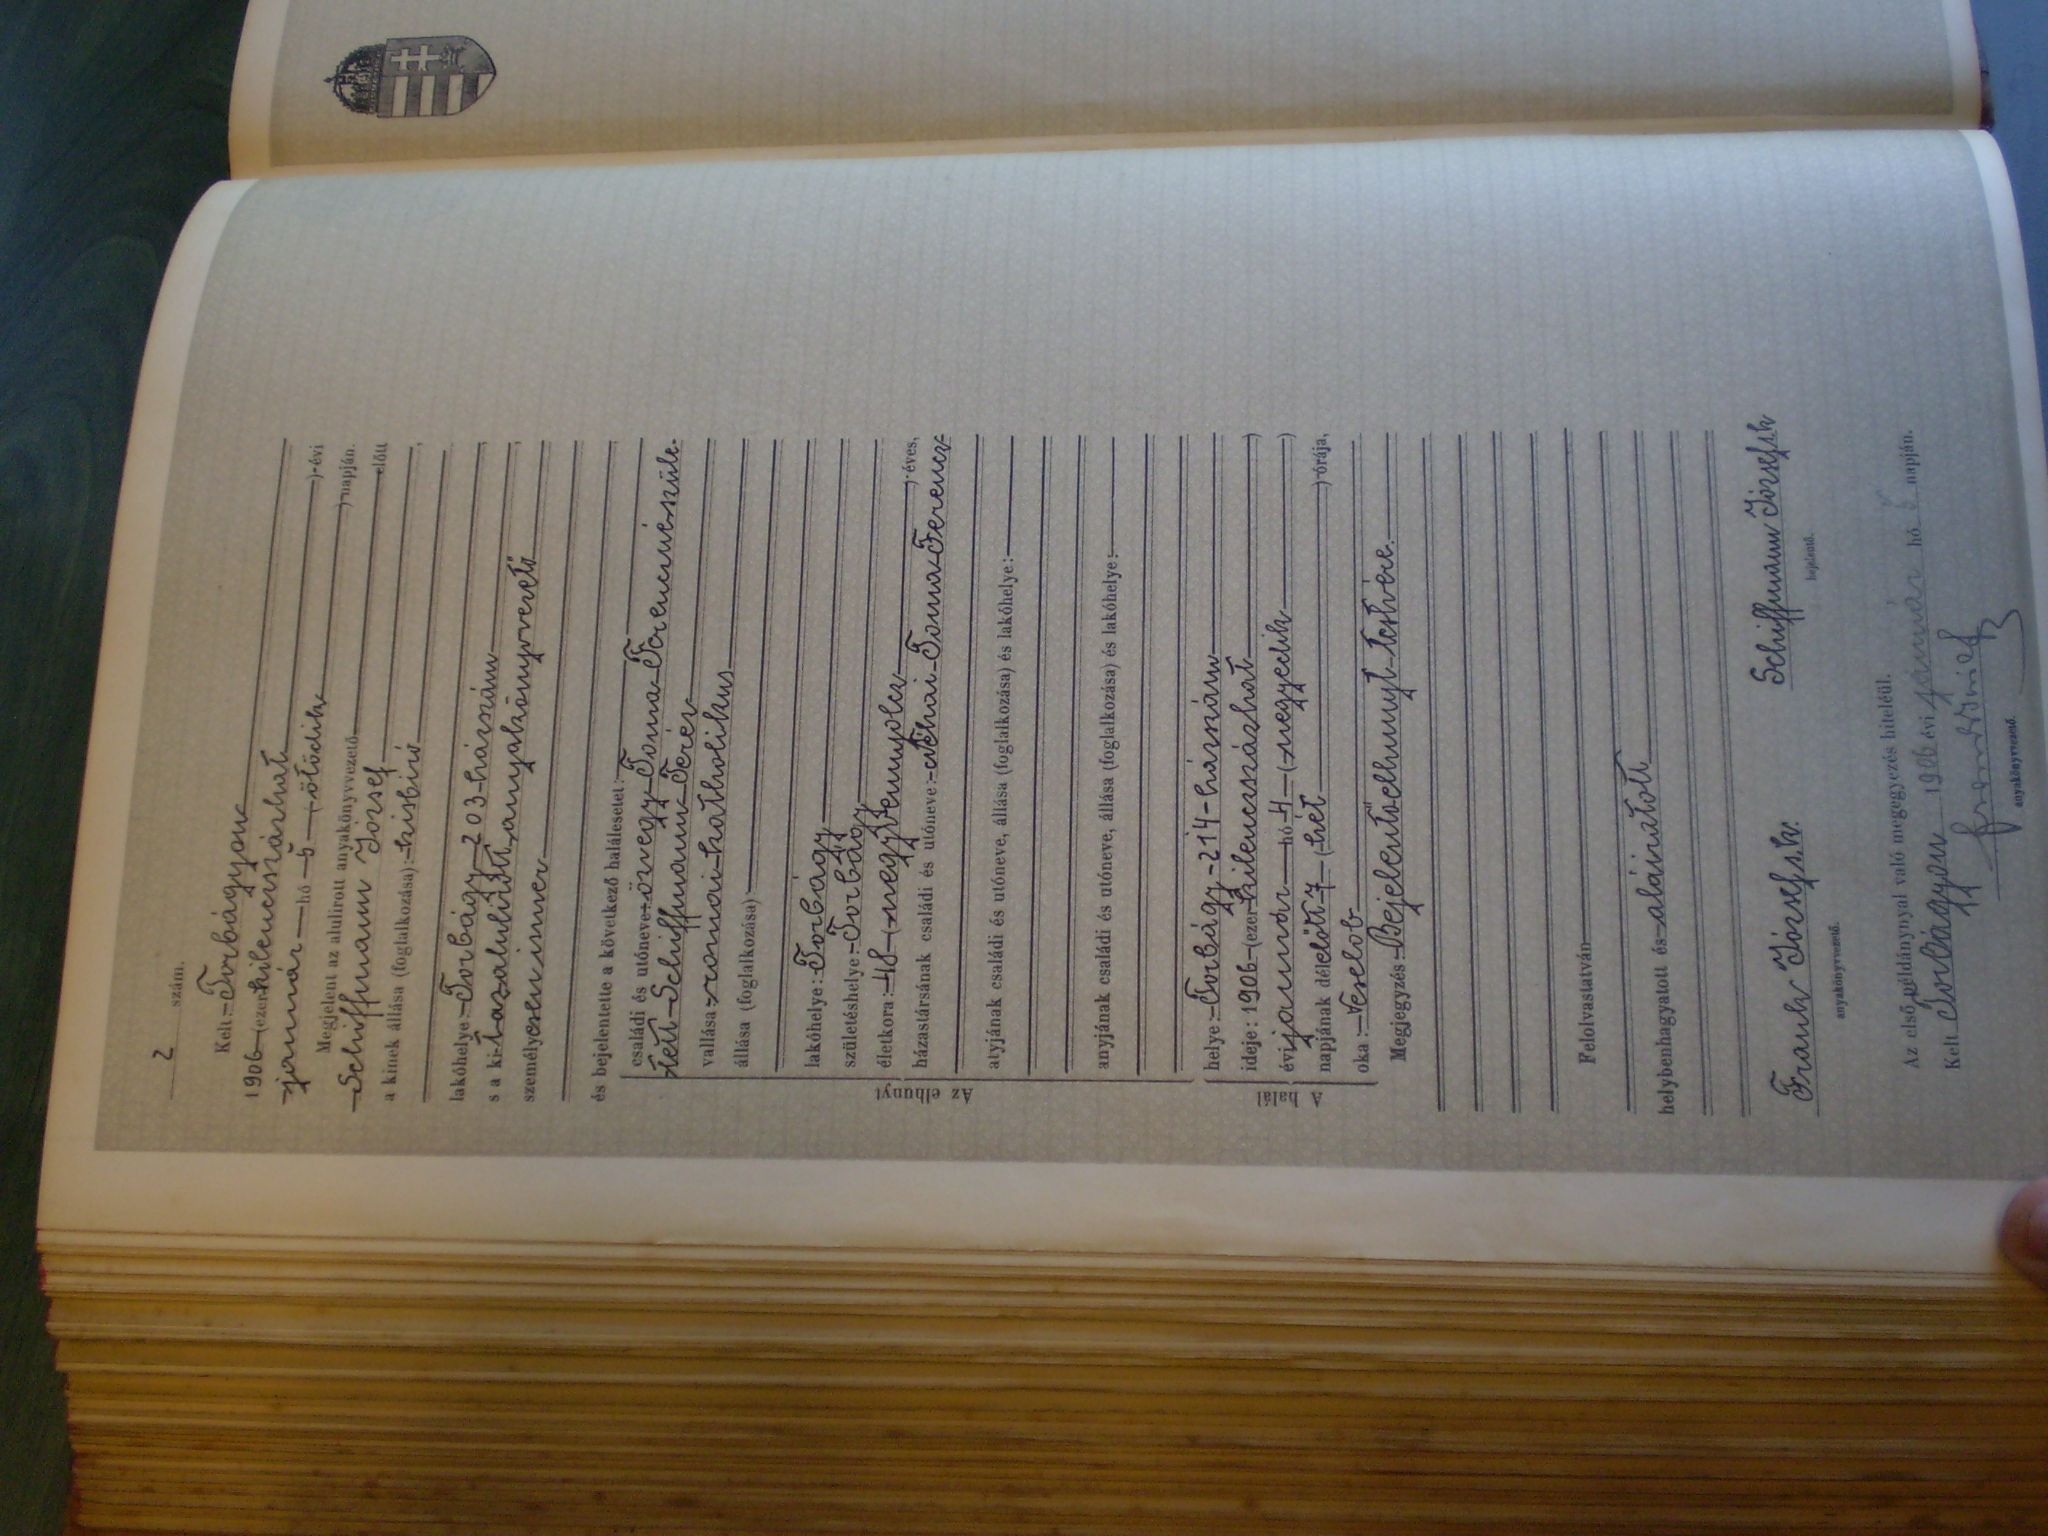 2 szám.
Kelt: Torbágyon
1906 (ezerkilenczszázhat)-évi
január hó 5 (ötödik) napján.
Megjelent az alulirott anyakönyvvezető előtt
Schiffmann József
a kinek állása (foglalkozása): kisbiró,
lakóhelye: Torbágy 203 házszám,
s a ki
személyesen ismer
és bejelentette a következő halálesetet:
családi és utóneve: özvegy Toma Ferencné szüle-
tett Schiffmann Teréz
vallása: római katholikus
állása (foglalkozása):
lakóhelye: Torbágy
születéshelye: Torbágy
életkora: 48 (negyvennyolcz) éves,
házastársának családi és utóneve: Néhai Toma Ferencz
atyjának családi és utóneve, állása (foglalkozása) és lakóhelye:
anyjának családi és utóneve, állása (foglalkozása) és lakóhelye:
Az elhunyt
helye: Torbágy 214 házszám
ideje: 1906 (ezerkilenczszázhat)
évi január hó 4 (negyedik)
napjának délelőtt 7 (hét) órája,
oka: Veselob
A halál
Megjegyzés: Bejelentő elhunyt testvére.
Felolvastatván
helybenhagyatott és aláiratott
Frank József s.k. Schiffmann József s.k.
anyakönyvvezető. bejelentő.
Az első példánynyal való megegyezés hiteléül.
Kelt Torbágyon 1906 évi január hó 5 napján.
anyakönyvvezető.